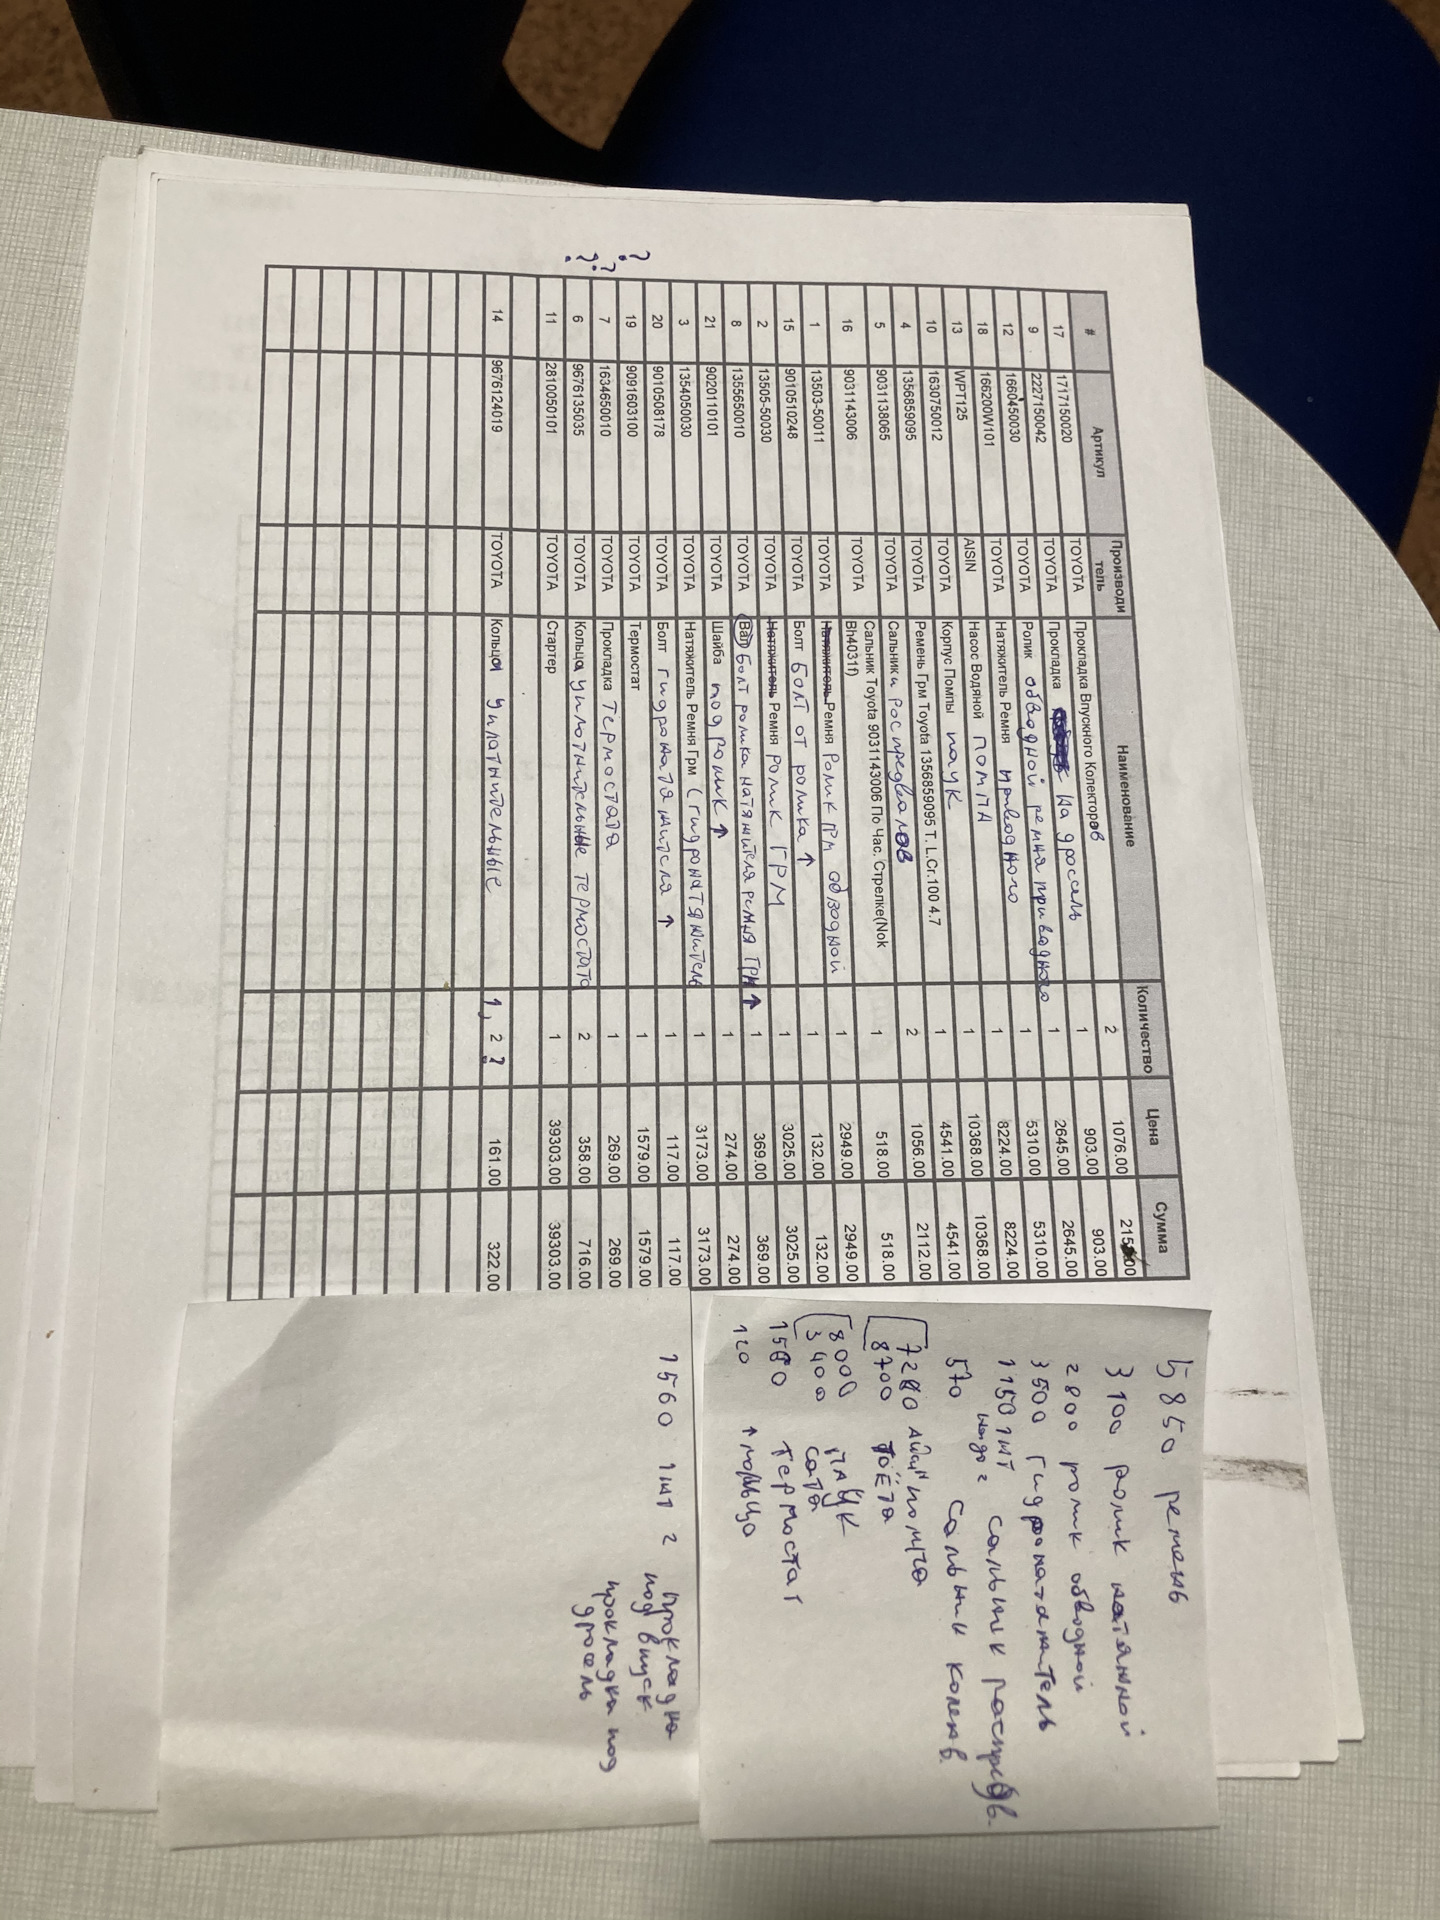 # Артикул Производи
тель Наименование Количество Цена Сумма
17 1717150020 TOYOTA Прокладка Впускного Колекторов 2 1076.00
9 2227150042 TOYOTA Прокладка на дросель 1 903.00 903.00
12 1660450030 TOYOTA Ролик обводной ремня приводного 1 2645.00 2645.00
18 166200W101 TOYOTA Натяжитель Ремня приводного 1 5310.00 5310.00
13 WPT125 AISIN Насос Водяной помпа 1 8224.00 8224.00
10 1630750012 TOYOTA Корпус Помпы паук 1 10368.00 10368.00
4 1356859095 TOYOTA Ремень Грм Toyota 1356859095 T. L.Cr.100 4.7 1 4541.00 4541.00
5 9031138065 TOYOTA Сальники распредвалов 2 1056.00 2112.00
16 9031143006 TOYOTA Сальник Toyota 9031143006 По Час. Стрелке(Nok
Bh4031f) 1 518.00 518.00
1 13503-50011 TOYOTA Натяжитель Ремня Ролик грм обводной 1 2949.00 2949.00
15 9010510248 TOYOTA Болт болт от ролика ↑ 1 132.00 132.00
2 13505-50030 TOYOTA Натяжитель Ремня ролик ГРМ 1 3025.00 3025.00
8 1355650010 TOYOTA Вал болт ролика натяжителя ремня ГРМ ↑ 1 369.00 369.00
21 9020110101 TOYOTA Шайба под ролик ↑ 1 274.00 274.00
3 1354050030 TOYOTA Натяжитель Ремня Грм (гидронатяжитель 1 3173.00 3173.00
20 9010508178 TOYOTA Болт гидронатяжителя ↑ 1 117.00 117.00
? 19 9091603100 TOYOTA Термостат 1 1579.00 1579.00
? 7 1634650010 TOYOTA Прокладка термостата 1 269.00 269.00
? 6 9676135035 TOYOTA Кольца уплотнительные термостата 2 358.00 716.00
11 2810050101 TOYOTA Стартер 1 39303.00 39303.00
14 9676124019 TOYOTA Кольца уплатнительные 1, 2 ? 161.00 322.00
5850 ремень
3100 ролик натяжной
2800 ролик обводной
3500 гидронатяжитель
1150 1шт сальник распредв.
надо 2
570 сальник коленв.
7200 Айсин помпа
8700 ТОЁТА
8000 ПАУК
3400 сата
1500 термостат
120 ↑ кольцо
1560 1шт 2 прокладка
под впуск
прокладка под
дросель